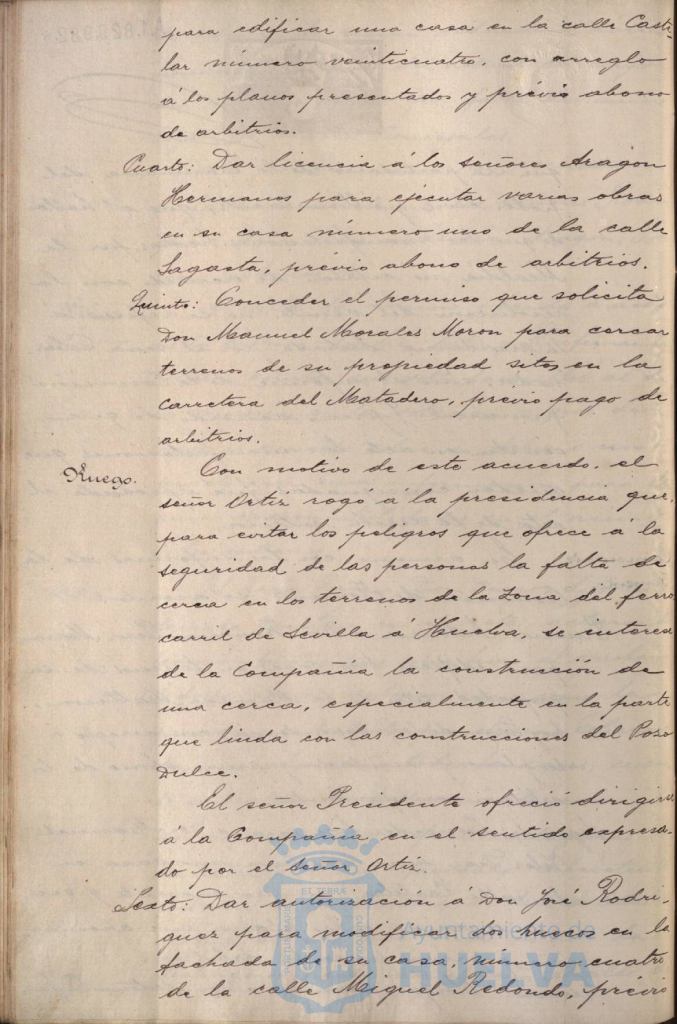 para edificar una casa en la calle Caste-
lar número veinticuatro, con arreglo
á los planos presentados y prévio abono
de arbitrios.
Cuarto: Dar licencia á los señores Aragon
Hermanos para ejecutar varias obras
en su casa número uno de la calle
Sagasta, prévio abono de arbitrios.
Quinto: Conceder el permiso que solicita
Don Manuel Morales Moron para cercar
terrenos de su propiedad sitos en la
Carretera del Matadero, prévio pago de
arbitrios.
Ruego. Con motivo de este acuerdo, el
señor Ortiz rogó á la presidencia que,
para evitar los peligros que ofrece á la
seguridad de las personas la falta de
cerca en los terrenos de la Zona del ferro
carril de Sevilla á Huelva, se interese
de la Compañia la construcción de
una cerca, especialmente en la parte
que linda con las construcciones del Pozo
Dulce.
El señor Presidente ofreció dirigirse
á la Compañia en el sentido expresa-
do por el señor Ortiz.
Sexto: Dar autorización á Don José Rodri-
guez para modificar dos huecos en la
fachada de su casa, número cuatro
de la calle Miguel Redondo, prévio
Ayuntamiento de
HUELVA